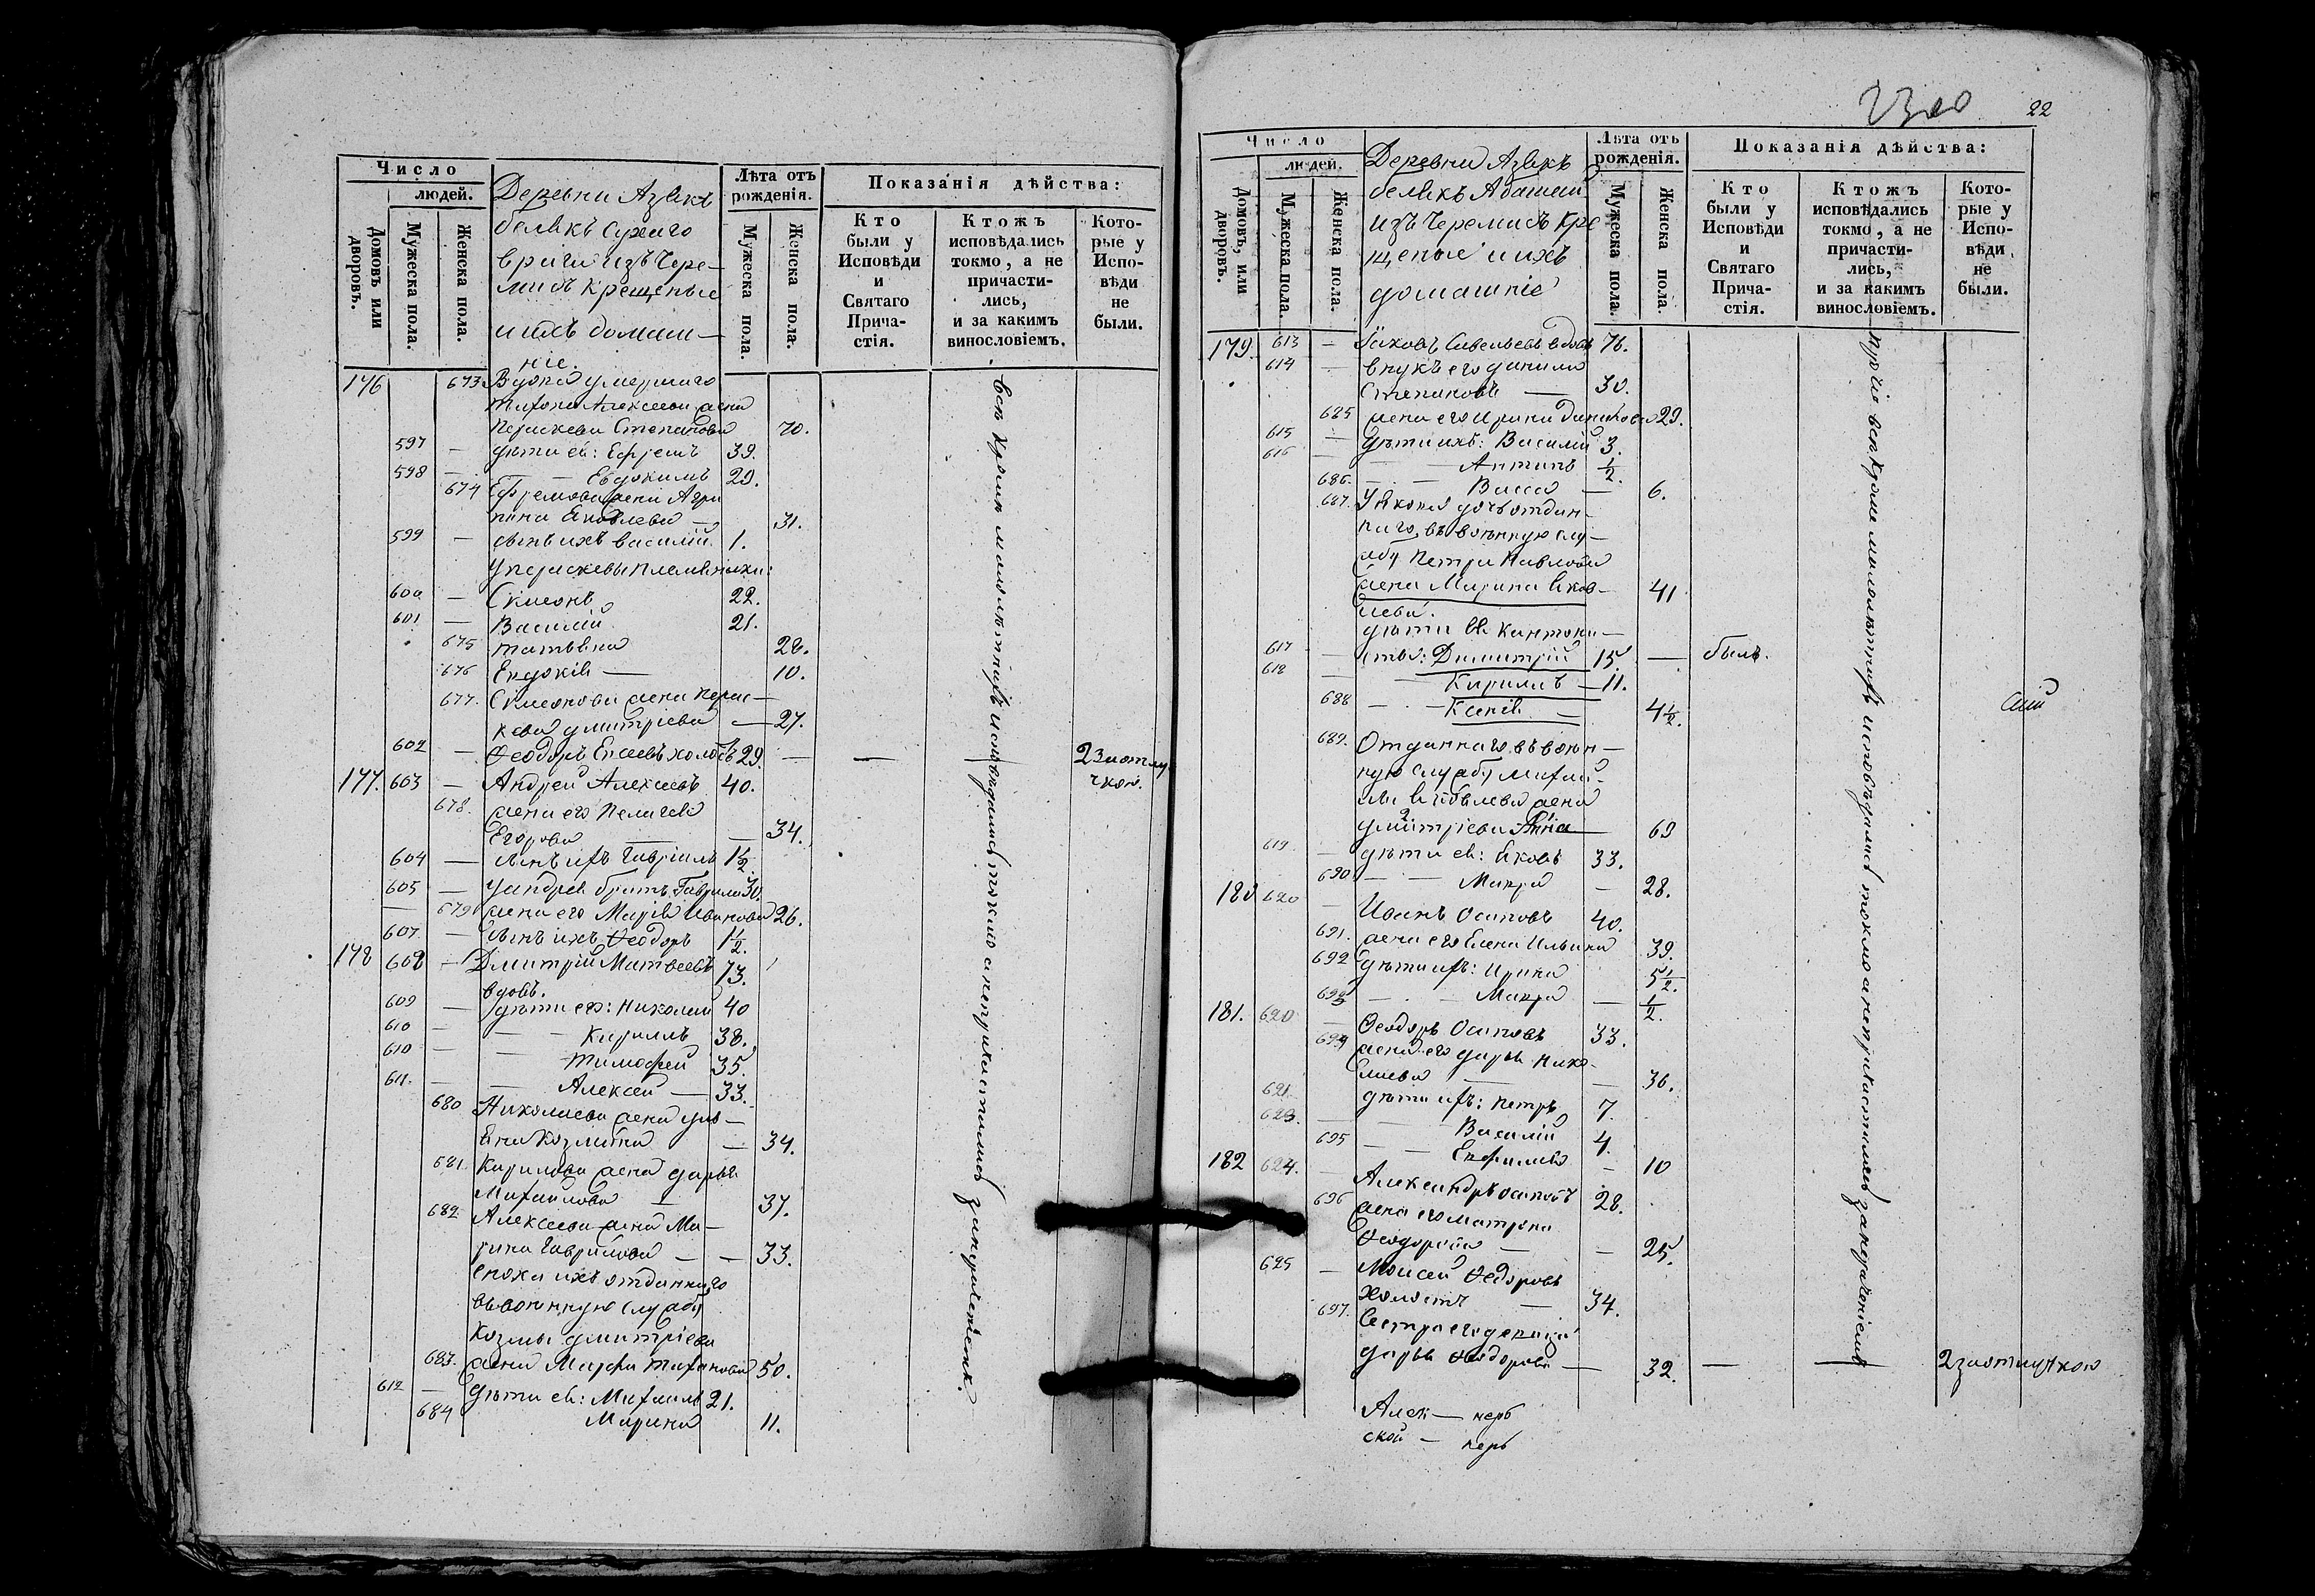 Число
людей.
Домовъ или дворовъ.
Мужеска пола.
Женска пола.
Деревни Азвкъ
белякъ Сухаго
врага изъ Чере-
мисъ крещеные
и ихъ домаш-
ніе.
Лѣта отъ рожденія.
Мужеска пола.
Женска пола.
Показанія дѣйства:
Кто были у Исповѣди и Святаго Причастія.
Ктожъ исповѣдались токмо, а не причастились, и за какимъ винословіемъ.
Которые у Исповѣди не были.
176 673 Вдова умершаго
Тихона Алексѣева жена
Параскева Степанова 70.
597 — дѣти ея: Ефремъ 39.
598 — — Евдокимъ 29.
674 Ефремова жена Агри
пина Яковлева — 31.
599 — сынъ ихъ Василій 1.
у Параскевы племянники:
600 — Симеонъ 22.
601 — Василій 21.
675 Татьяна 28.
676 Евдокія — 10.
677. Симеонова жена Парас-
кева Дмитріева — 27.
602 — Ѳеодоръ Евсеевъ холостъ 29. — — 2 за отлу
чкой.
177. 603 — Андрей Алексеевъ 40.
678. жена его Пелагея
Егорова — 34.
604 — сынъ ихъ Гавріилъ 1½.
605 — у Андрея братъ Гаврила 30.
679 жена его Марія Иванова 26.
607 — сынъ ихъ Ѳеодоръ 1½.
178 608 — Дмитрій Матвеевъ 73.
вдовъ.
609 — дѣти его: Николай 40
610 — — Кириллъ 38.
610 — — Тимофей 35.
611. — — Алексей — 33.
680 Николаева жена Уль-
яна Козмина — 34.
681. Кирилова жена Дарья
Михайлова — 37.
682 Алексеева жена Ма-
рина Гаврилова — — 33.
сноха ихъ отданнаго
въ военную службу
Козмы Дмитріева
683. жена Марфа Тихонова 50.
612 — дѣти ея: Михаилъ 21.
684 Марина 11.
Всѣ кромѣ малолѣтнихъ исповѣдались токмо а не причастились
22
Число
людей.
Домовъ, или дворовъ.
Мужеска пола.
Женска пола.
Деревни Азвкъ
белякъ Абашай
изъ Черемисъ кре
щеные и ихъ
домашніе
Лѣта отъ рожденія.
Мужеска пола.
Женска пола.
Показанія дѣйства:
Кто были у Исповѣди и Святаго Причастія.
Ктожъ исповѣдались токмо, а не причастились, и за какимъ винословіемъ.
Которые у Исповѣди не были.
179. 613 — Іаковъ Савельевъ вдовъ 76.
614 — внукъ его Данила
Степановъ — 30.
685 жена его Ирина Данилова 29.
615 — дѣти ихъ: Василій 3.
616 — — Антипъ ½.
686. — — Васса — 6.
687. У Якова дочь отдан-
наго въ военную слу-
жбу Петра Павлова
жена Марина Яков- 41
лева.
дѣти ея кантони-
617 — сты: Димитрій 15. — былъ.
618 — — Кирилъ — 11.
688 — — Ксенія — 4½.
689. Отданнаго въ воен-
ную службу Михай-
ла Яковлева жена
Дмитріева Анна — 69
619 — дѣти ея: Яковъ 33.
690 — — Мавра — 28.
180 620 — Иванъ Осиповъ 40.
691. жена его Елена Ильина 39.
692 дѣти ихъ: Ирина 5½.
693 — — Мавра — ½.
181. 620 — Ѳеодоръ Осиповъ 33.
694 жена его Дарья Нико-
лаева — — 36.
621. дѣти ихъ: Петръ 7.
623. — — Василій 4.
695 — — Евфимія — 10
182 624. — Александръ Осиповъ 28.
696 жена его Матрона
Ѳеодорова — — 25.
625 — Моисей Ѳедоровъ
холостъ — 34.
697. Сестра его девица
Дарья Ѳеодорова — 32. — — 2 за отлучкою
прочіе всѣ кроме малолѣтнихъ исповѣдались токмо а не причастились